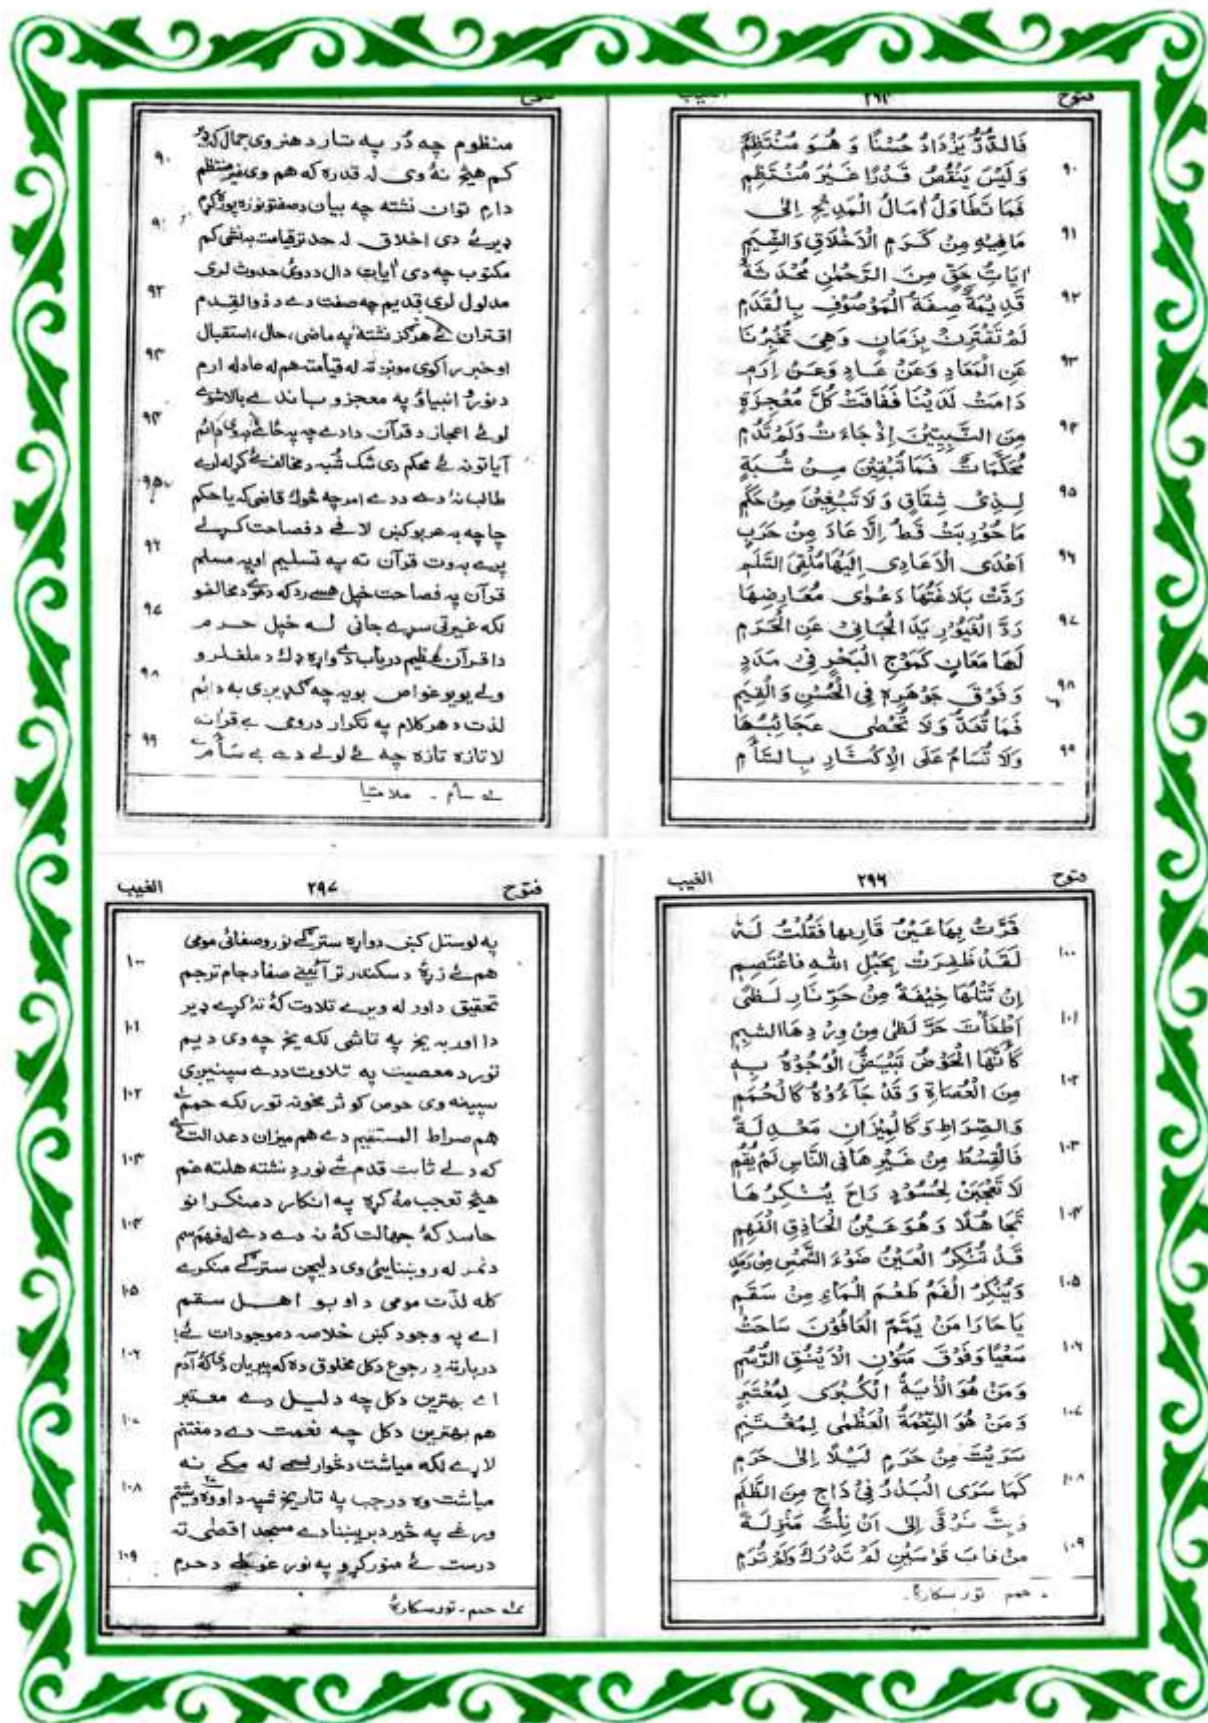 فتوح ٢٩٤ الغيب
فَالدُّرُّ يَزْدَادُ حُسْنًا وَ هُوَ مُنْتَظِمٌ
٩٠ وَلَيْسَ يَنْقُصُ قَدْرًا غَيْرَ مُنْتَظِمٖ
فَمَا تَطَاوَلُ اٰمَالُ الْمَدِيْحِ اِلٰى
٩١ مَا فِيْهِ مِنْ كَرَمِ الْاَخْلَاقِ وَالشِّيَمٖ
اٰيَاتُ حَقٍّ مِنَ الرَّحْمٰنِ مُحْدَثَةٌ
٩٢ قَدِيْمَةٌ صِفَةُ الْمَوْصُوْفِ بِالْقِدَمٖ
لَمْ تَقْتَرِنْ بِزَمَانٍ وَهِيَ تُخْبِرُنَا
٩٣ عَنِ الْمَعَادِ وَعَنْ عَادٍ وَعَنْ اِرَمٖ
دَامَتْ لَدَيْنَا فَفَاقَتْ كُلَّ مُعْجِزَةٍ
٩٤ مِنَ النَّبِيِّيْنَ اِذْ جَاءَتْ وَلَمْ تَدُمٖ
مُحَكَّمَاتٌ فَمَا تُبْقِيْنَ مِنْ شُبَهٍ
٩٥ لِذِيْ شِقَاقٍ وَلَا تَبْغِيْنَ مِنْ حَكَمٖ
مَا حُوْرِبَتْ قَطُّ اِلَّا عَادَ مِنْ حَرَبٍ
٩٦ اَعْدَى الْاَعَادِيْ اِلَيْهَا مُلْقِيَ السَّلَمٖ
رَدَّتْ بَلَاغَتُهَا دَعْوٰى مُعَارِضِهَا
٩٧ رَدَّ الْغَيُوْرِ يَدَ الْجَانِيْ عَنِ الْحَرَمٖ
لَهَا مَعَانٍ كَمَوْجِ الْبَحْرِ فِيْ مَدَدٍ
٩٨ وَفَوْقَ جَوْهَرِهٖ فِي الْحُسْنِ وَالْقِيَمٖ
فَمَا تُعَدُّ وَلَا تُحْصٰى عَجَائِبُهَا
٩٩ وَلَا تُسَامُ عَلَى الْاِكْثَارِ بِالسَّاَمٖ
منظوم چه دُر په تار د هنر وی جمال
٩٠ کم هیڅ نۀ وی له قدره که هم وی غیر منتظم
دارم توان نشته چه بیان د صفتونو
٩١ ډیر ئے دی اخلاق له حد تر قیامت به نشی کم
مکتوب چه دی اٰیات دال د دوئی حدوث لری
٩٢ مدلول لری قدیم چه صفت دے د ذوالقِدم
اقتران ئے هرګز نشته په ماضی، حال، استقبال
٩٣ او خبر راکوی مونږ ته له قیامته هم له عاد له ارم
د نورو انبیاؤ په معجزو باندے بالا شوے
٩٤ لوئے اعجاز د قرآن دا دے چه په ځائے دائم
آیاتونه ئے محکم دی شک شُبه د مخالف
٩٥ طالب نۀ دے د دے امر چه څوک قاضی که یا حکم
چا چه به عربو کښ لافے د فصاحت کړلے
٩٦ پرے بدوت قرآن ته په تسلیم او په مسلم
قرآن په فصاحت خپل هسے رد که دعوے د مخالفو
٩٧ لکه غیرتی سړے جانی له خپل حرم
دا قرآن عظیم دریاب دے واړه ډک د ملغلرو
٩٨ ولے یو یو غواص بویه چه ګډیږی به دائم
لذت د هر کلام په تکرار درومی بے قرآنه
٩٩ لا تازه تازه چه ئے لولے دے بے سَأم
له سأم ـ ملامتیا
فتوح ٢٩٦ الغيب
قَرَّتْ بِهَا عَيْنُ قَارِيْهَا فَقُلْتُ لَهٗ
١٠٠ لَقَدْ ظَفِرْتَ بِحَبْلِ اللهِ فَاعْتَصِمٖ
اِنْ تَتْلُهَا خِيْفَةً مِنْ حَرِّ نَارِ لَظٰى
١٠١ اَطْفَأْتَ حَرَّ لَظٰى مِنْ وِرْدِهَا الشَّبِمٖ
كَاَنَّهَا الْحَوْضُ تَبْيَضُّ الْوُجُوْهُ بِهٖ
١٠٢ مِنَ الْعُصَاةِ وَقَدْ جَآءُوْهُ كَالْحُمَمٖ
وَالصِّرَاطِ وَكَالْمِيْزَانِ مَعْدِلَةً
١٠٣ فَالْقِسْطُ مِنْ غَيْرِهَا فِي النَّاسِ لَمْ يَقُمٖ
لَا تَعْجَبَنْ لِحَسُوْدٍ رَاحَ يُنْكِرُهَا
١٠٤ تَجَاهُلًا وَهُوَ عَيْنُ الْحَاذِقِ الْفَهِمٖ
قَدْ تُنْكِرُ الْعَيْنُ ضَوْءَ الشَّمْسِ مِنْ رَمَدٍ
١٠٥ وَيُنْكِرُ الْفَمُ طَعْمَ الْمَاءِ مِنْ سَقَمٖ
يَا خَيْرَ مَنْ يَمَّمَ الْعَافُوْنَ سَاحَتَهٗ
١٠٦ سَعْيًا وَفَوْقَ مُتُوْنِ الْاَيْنُقِ الرُّسُمٖ
وَمَنْ هُوَ الْاٰيَةُ الْكُبْرٰى لِمُعْتَبِرٍ
١٠٧ وَمَنْ هُوَ النِّعْمَةُ الْعُظْمٰى لِمُغْتَنِمٖ
سَرَيْتَ مِنْ حَرَمٍ لَيْلًا اِلٰى حَرَمٍ
١٠٨ كَمَا سَرَى الْبَدْرُ فِيْ دَاجٍ مِنَ الظُّلَمٖ
وَبِتَّ تَرْقٰى اِلٰى اَنْ نِلْتَ مَنْزِلَةً
١٠٩ مِنْ قَابَ قَوْسَيْنِ لَمْ تُدْرَكْ وَلَمْ تُرَمٖ
حمم تور سکارۀ
فتوح ٢٩٧ الغيب
په لوستل کښ دواړه سترګے نور و صفائی مومی
١٠٠ هم ئے زړۀ د سکندر تر آئینے صفا د جام تر جم
تحقیق د اور له ویرے تلاوت کۀ تۀ کړے ډیر
١٠١ دا اور به یخ په تا شی لکه یخ چه وی دیم
تور د معصیت په تلاوت د دے سپینیږی
١٠٢ سپینه وی حوض کوثر مخونه تور لکه حمم
هم صراط المستقیم دے هم میزان د عدالت
١٠٣ که دلے ثابت قدم شے نور د نشته هلته غم
هیڅ تعجب مۀ کړه په انکار د منکرانو
١٠٤ حاسد کۀ جهالت کۀ نه دے دے له فهم سم
د نمر له روښنایئ وی د لیچن سترګے منکرے
١٠٥ کله لذّت مومی د اوبو اهل سقم
اے په وجود کښ خلاصه د موجودات ئے!
١٠٦ دربار ته د رجوع د کل مخلوق ده که پیریان دی کۀ آدم
اے بهترین د کل چه دلیل دے معتبر
١٠٧ هم بهترین د کل چه نعمت دے د مغتنم
لاړے لکه میاشت د څوارلسمے له مکے نه
١٠٨ میاشت وه د رجب په تاریخ شپه د اووۀ ویشتم
ورغے په خیر د بریښنا دے مسجد اقصٰی ته
١٠٩ درست ئے منور کړو په نور غوطے د حرم
له حمم ـ تور سکارۀ